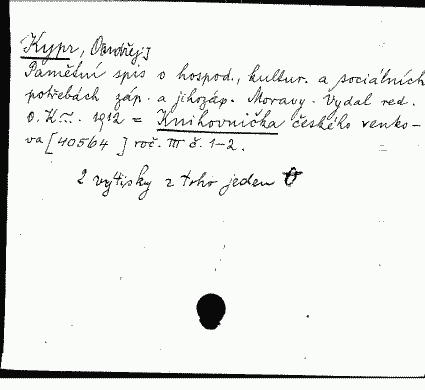 Kypr, Ondřej:
Pamětní spis o hospod., kultur. a sociálních
potřebách záp. a jihozáp. Moravy. Vydal red.
O. K. 1912 = Knihovnička českého venko-
va [40564 ] roč. III č. 1-2.
2 výtisky z toho jeden